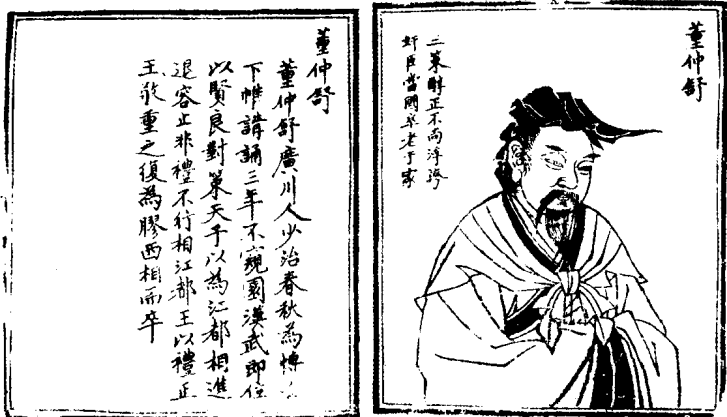 董仲舒
三策醇正不尚浮誇
奸臣當國卒老于家
董仲舒
董仲舒廣川人少治春秋為博
下帷講誦三年不窺園漢武即位
以賢良對策天子以為江都相進
退容止非禮不行相江都王以禮正
王敬重之復為膠西相而卒